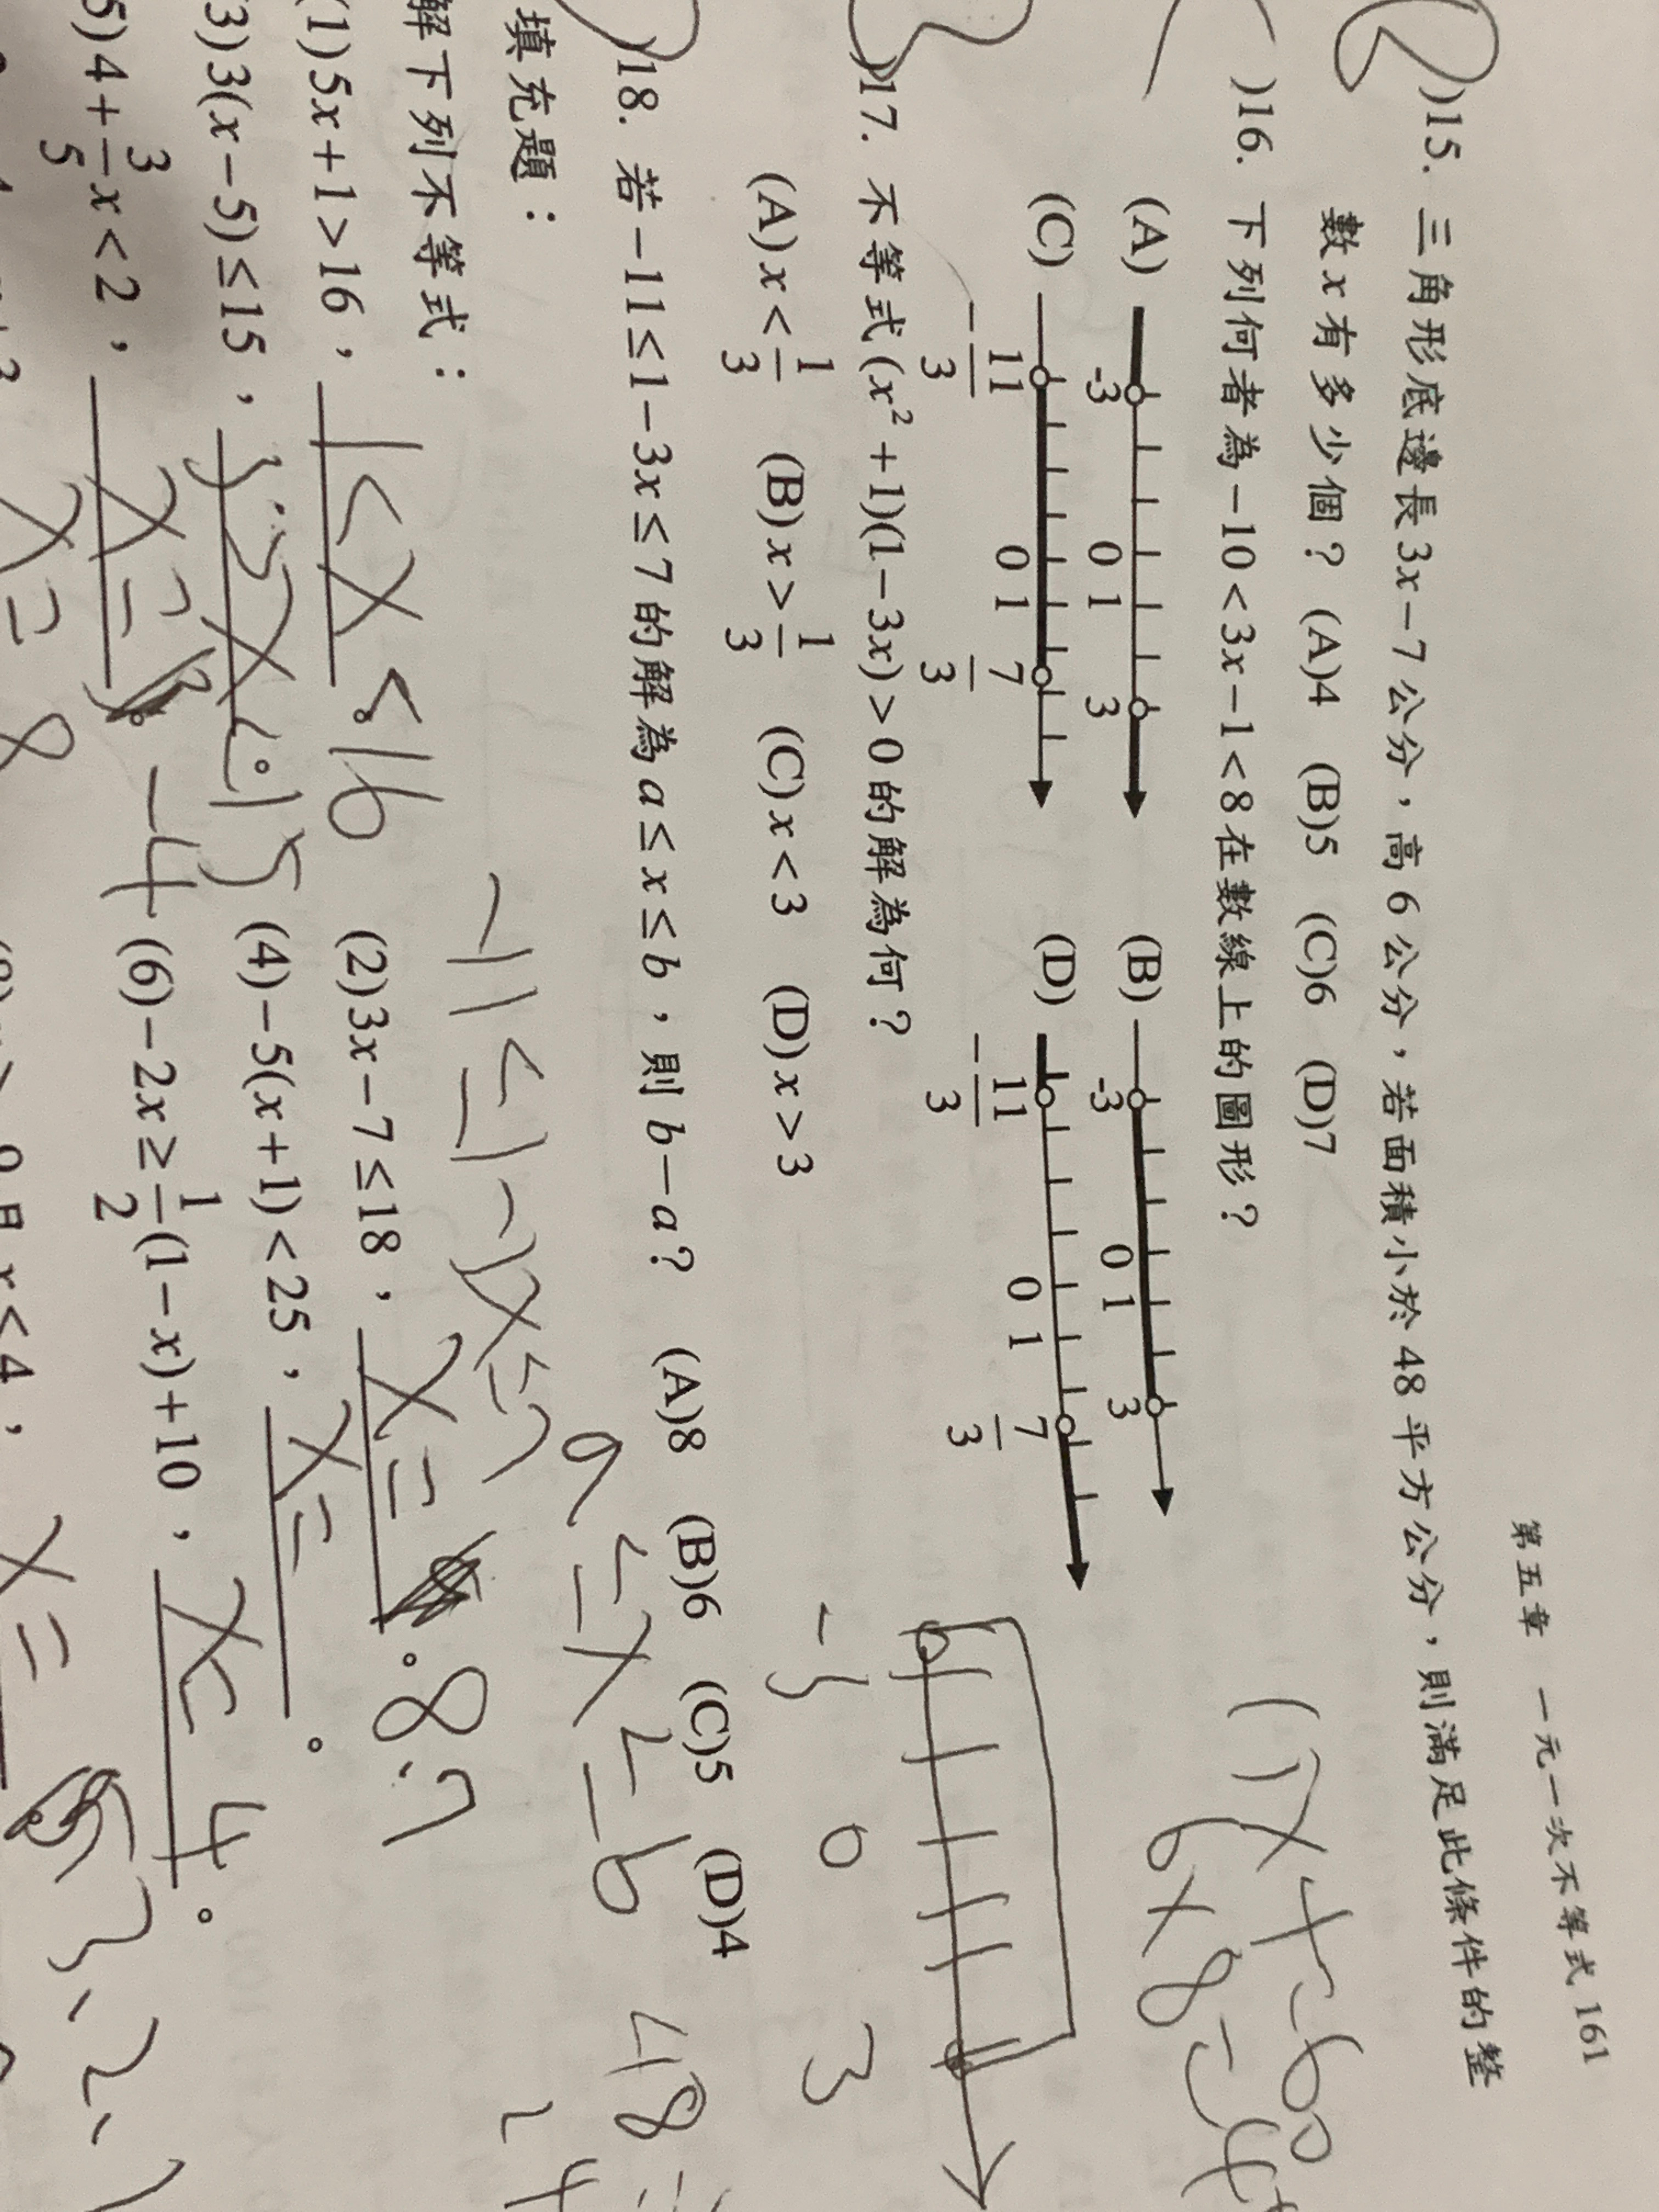 第五章 一元一次不等式 161
)15. 三角形底邊長3x-7公分，高6公分，若面積小於48平方公分，則滿足此條件的整
數x有多少個？(A)4 (B)5 (C)6 (D)7
)16. 下列何者為-10<3x-1<8在數線上的圖形？
(A) -3 0 1 3 (B) -3 0 1 3
(C) -11/3 0 1 7/3 (D) -11/3 0 1 7/3
)17. 不等式(x²+1)(1-3x)>0的解為何？
(A)x<1/3 (B)x>1/3 (C)x<3 (D)x>3
-3 0 3
)18. 若-11≤1-3x≤7的解為a≤x≤b，則b-a？ (A)8 (B)6 (C)5 (D)4
a≤x≤b 48
填充題：
解下列不等式：
(1)5x+1>16，1<x<16。 (2)3x-7≤18，x=8.7。
3)3(x-5)≤15， (4)-5(x+1)<25，x=。
5)4+3/5x<2，x= -4。 (6)-2x≥1/2(1-x)+10，x=4。
x=8 x<4， x=